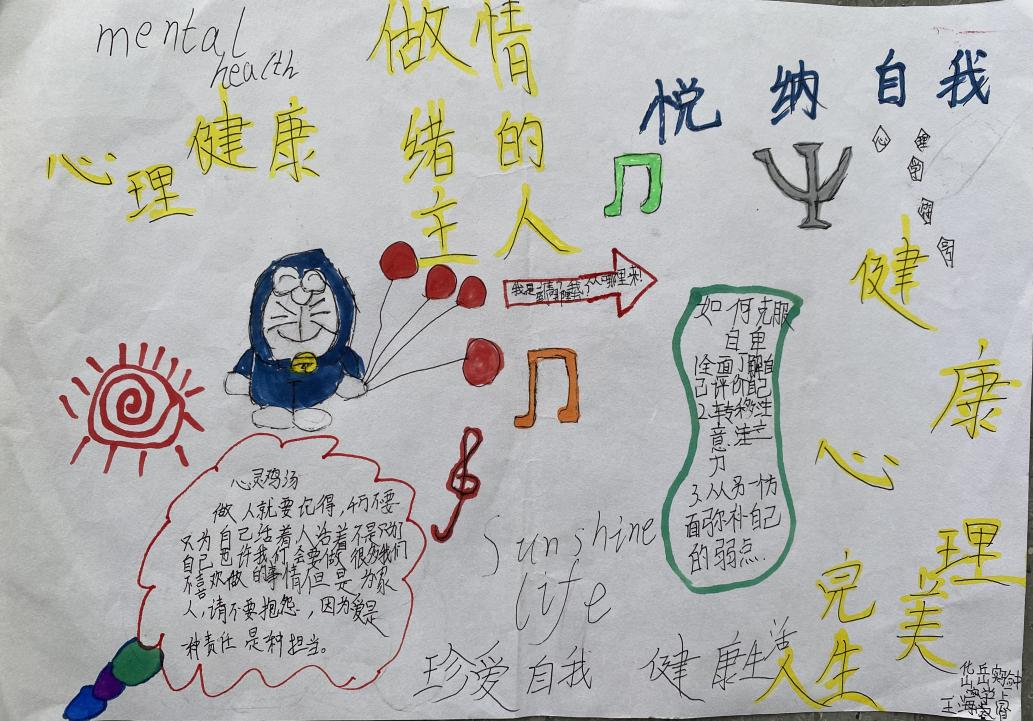 mental
health
心理健康
做情
绪的
主人
悦纳自我
如何克服
自卑
1全面了解自
己评价自己
2.转移注
意注
力
3.从另一方
面弥补自己
的弱点.
健康心理
完美人生
心灵鸡汤
做人就要记得,千万不要
又为自己活着人活着不是为了
自己也许我们会要做很多我们
不喜欢做的事情但是为家
人,请不要抱怨,因为爱是
一种责任是种担当。
Sunshine
life
珍爱自我 健康生活